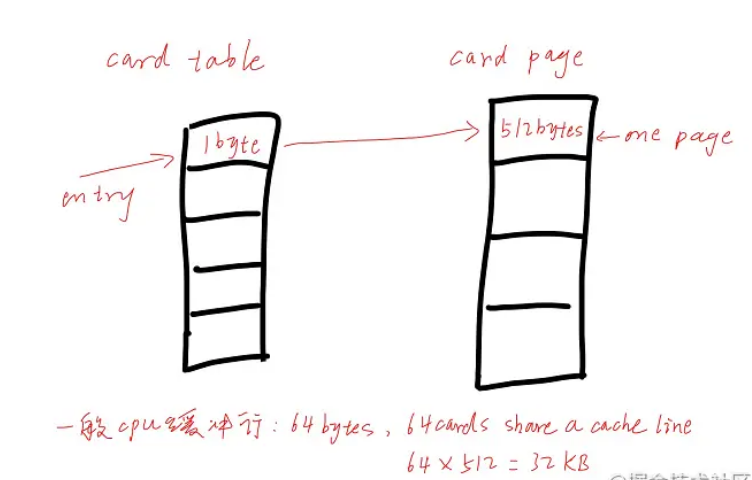 card table
card page
1byte
512bytes
one page
entry
一般cpu缓冲行：64bytes，64cards share a cache line
64×512=32KB